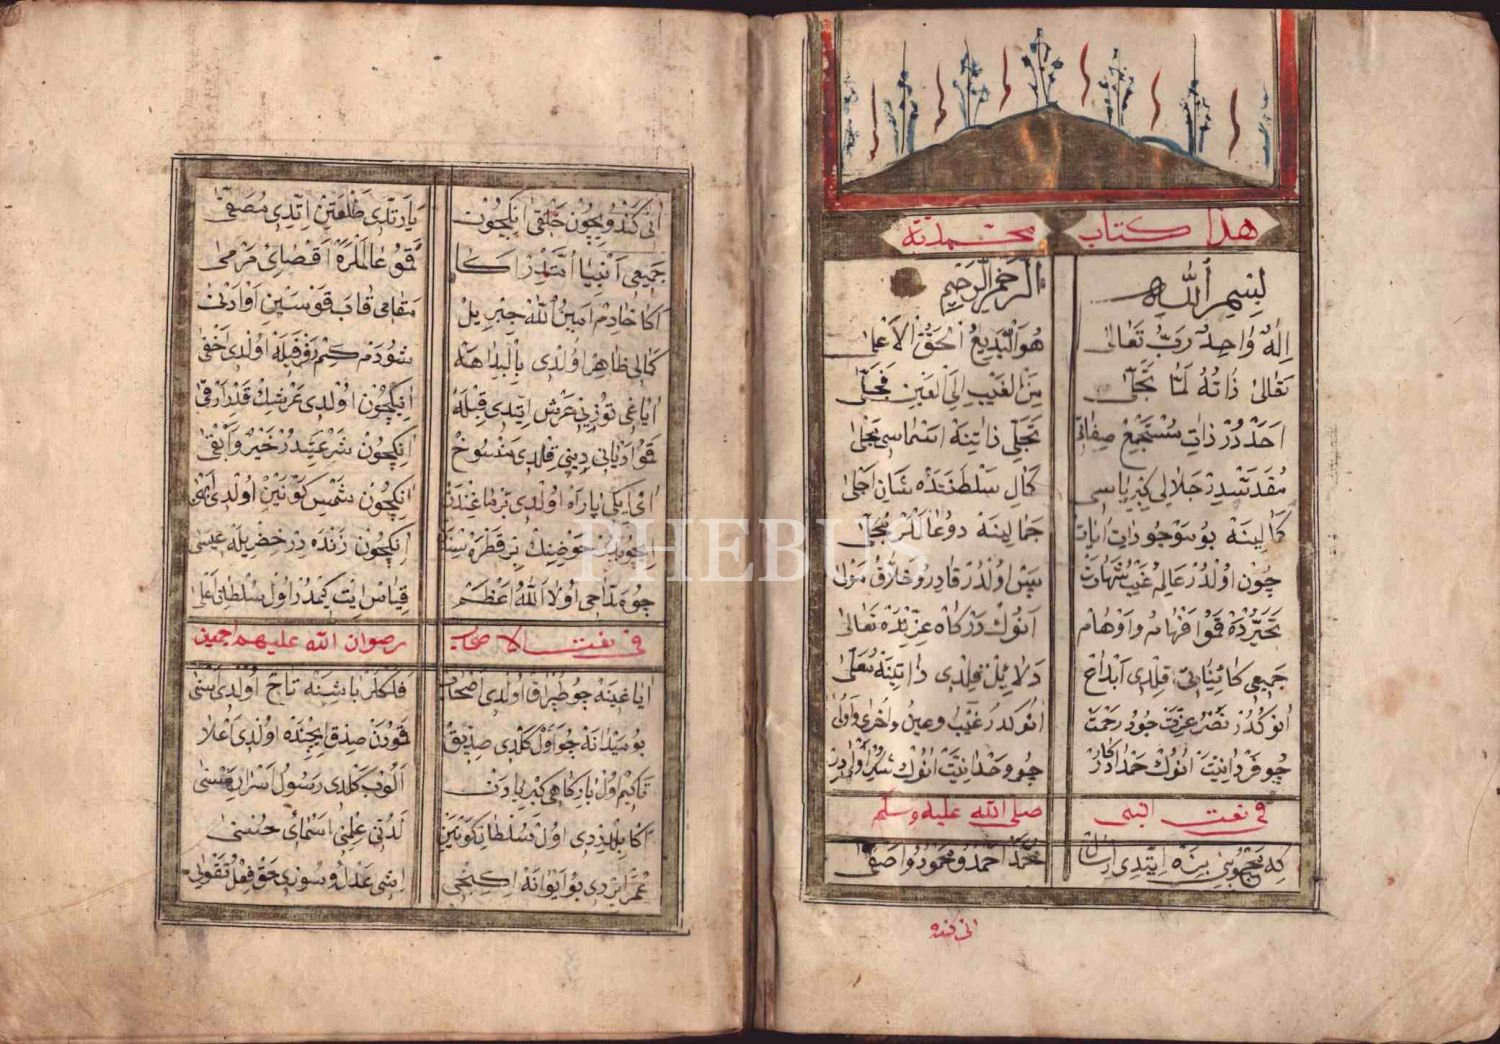 هذا كتاب محمدية
بسم الله الرحمن الرحيم
اله واحد رب تعالى هو البديع الحق الاعلى
تعالى ذاته لما تجلى من الغيب الى العين فجلى
احددر ذات مستجمع صفاتى تجلى ذاتنه اسماسى تجلى
مقدسدر جلالى كبرياسى كمال سلطنتده شان اجلى
كمالينه بو موجودات ايات جمالينه دو عالملر مجلى
چون اولدر عالم غيب شهادت بس اولدر قادر و خلاق مولى
تحيرده قمو افهام و اوهام انوك دركاه عزينده تعالى
جميعى كائناتى قلدى ابداع دلائل قلدى ذاتينه معلى
انوكدر عزت جود رحمت انوكدر غيب و عين و اخرى و اولى
چو فردانيت انوك حمد چو وحدانيت انوك شكر
فى نعت النبى صلى الله عليه وسلم
كه محبوبنى بزه ايتدى محمد احمد و محمود و اصفى
انى كندو
PHEBUS
انى كندو ايچون خلقى انكچون يارتدى ظلمتن اتدى مصفى
جميعى انبيا اكا قمو عالملره اقصاى مرمى
اكا خادم امين الله جبريل مقامى قاب قوسين او ادنى
كمالى ظاهر اولدى بالبداهه اولدى اخفى
اياغى توزنى عرش ايتدى قبله انكچون اولدى عرشك قدر ارقى
قمو اديانى دينى قلدى منسوخ انكچون شرعيدر خير و ابقى
اى ايكى ياره اولدى برماغندن انكچون شمس كونين اولدى
حوضنك بر قطره انكچون زنده در خضريله عيسى
چو مداحى اولا الله اعظم قياس ايت كيمدر اول سلطان اعلى
فى نعت الاصحاب رضوان الله عليهم اجمعين
اياغينه چو طپراق اولدى اصحاب فلكلر باشنه تاج اولدى اسنى
بو ميدانه چو اول كلدى صديق قمودن صدق ايچنده اولدى اعلا
كبريادن الوب كلدى رسول اسرار
اكا بلدردى اول سلطان كونين لدنى علمنى اسماى حسنى
عمر ايردى بو ايوانه ايكنجى ايشى عدل و سوزى حق فعل تقوى